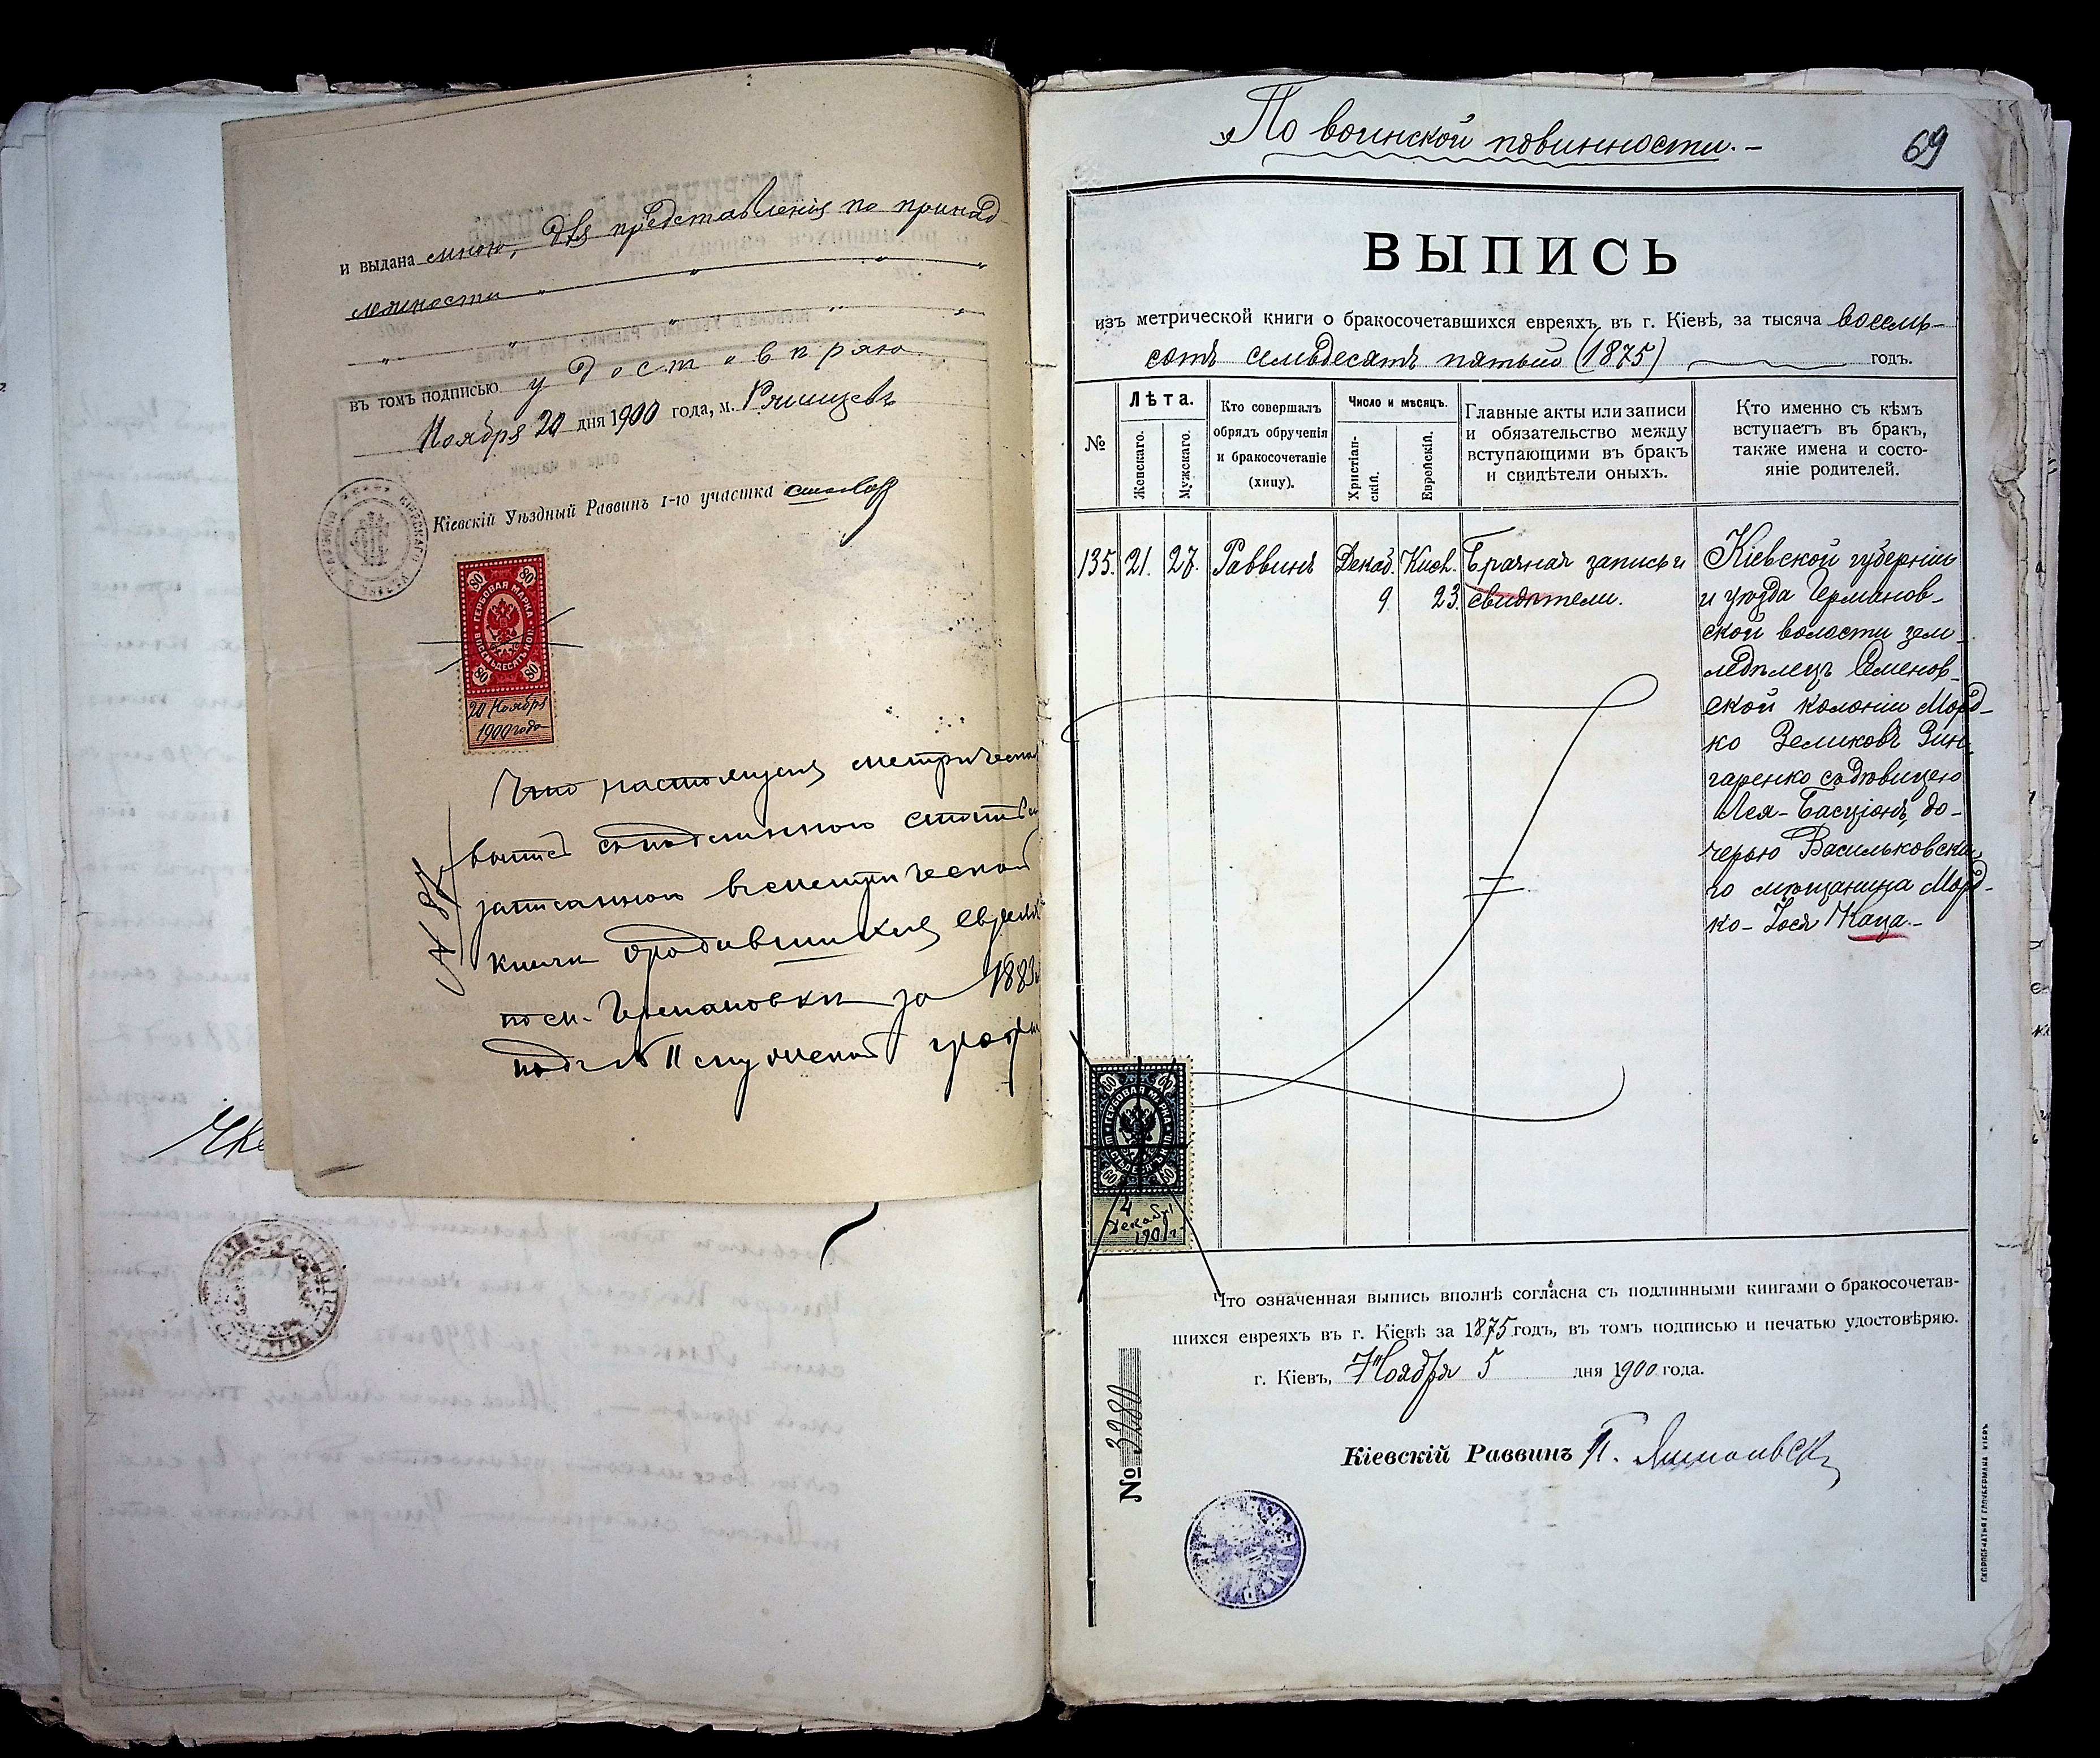 и выдана мною, для представленія по принад-
лежности
въ томъ подписью удостовѣряю
Ноября 20 дня 1900 года, м. Ржищевъ
Кіевскій Уѣздный Раввинъ 1-го участка
80 80
ГЕРБОВАЯ МАРКА
ВОСЕМЬДЕСЯТЪ КОП.
80 80
20 Ноября
1900 года
Что настоящая метрическая
выпись
записанною въ метрической
книги о родившихся евреяхъ
по м. Германовки за 188
подъ № 11 мужской графы
„По воинской повинности.-
69
ВЫПИСЬ
изъ метрической книги о бракосочетавшихся евреяхъ въ г. Кіевѣ, за тысяча восемь-
сотъ семьдесятъ пятый (1875) годъ.
№
Лѣта.
Женскаго.
Мужскаго.
Кто совершалъ
обрядъ обрученія
и бракосочетаніе
(хипу).
Число и мѣсяцъ.
Христіан-
скій.
Еврейскій.
Главные акты или записи
и обязательство между
вступающими въ бракъ
и свидѣтели оныхъ.
Кто именно съ кѣмъ
вступаетъ въ бракъ,
также имена и состо-
яніе родителей.
135. 21. 27. Раввинъ Декаб. Кисл. Брачная запись и Кіевской губерніи
9 23. свидѣтели. и уѣзда Германов-
ской волости зем-
ледѣлецъ Семенов-
ской колоніиМорд-
ко Зеликовъ Зин-
гаренко съ дѣвицею
Лея-Басціонъ, до-
черью Васильковска-
го мѣщанина Морд-
ко-Іося Каца.-
60 60
ГЕРБОВАЯ МАРКА
60 60
4
Декабря
1901 г.
Что означенная выпись вполнѣ согласна съ подлинными книгами о бракосочетав-
шихся евреяхъ въ г. Кіевѣ за 1875 годъ, въ томъ подписью и печатью удостовѣряю.
г. Кіевъ, Ноября 5 дня 1900 года.
№ 3280
Кіевскій Раввинъ П.